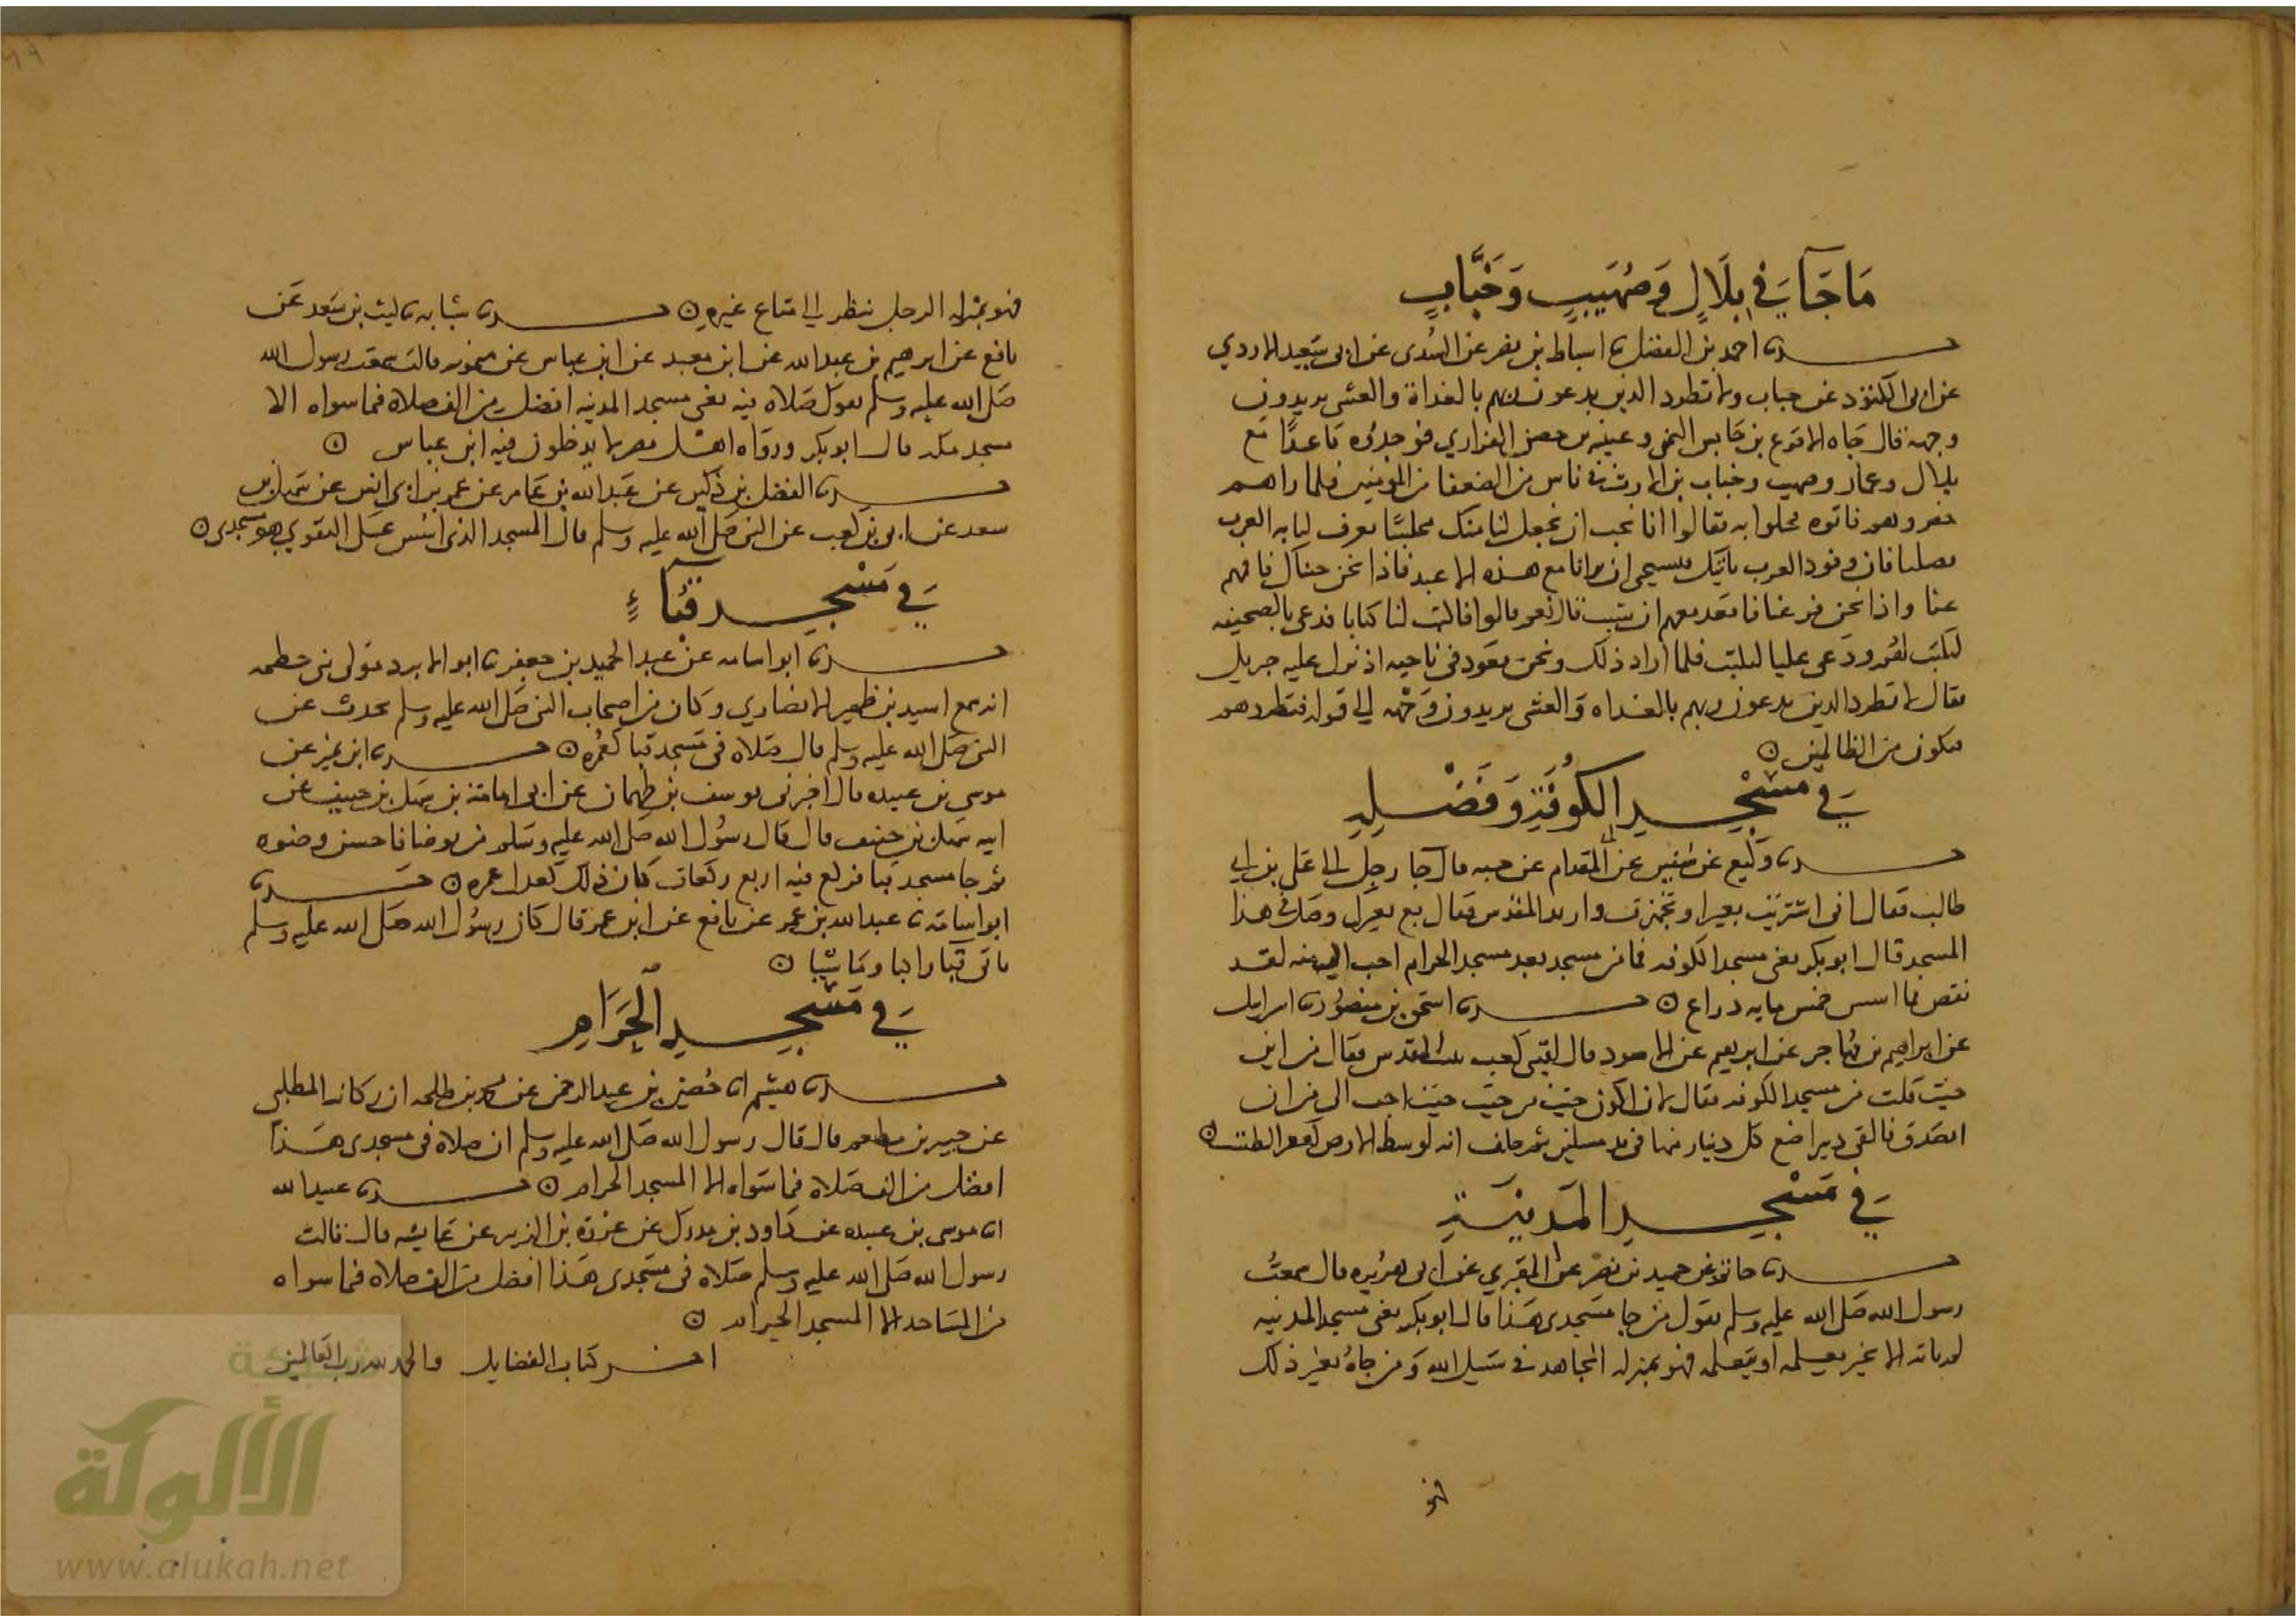 ما جآ في بلال وصهيب وخباب
حدثنا احمد بن المفضل ثنا اسباط بن نصر عن السدى عن ابى سعيد الازدي
عن ابى الكنود عن خباب ولا تطرد الذين يدعون ربهم بالغداة والعشى يريدون
وجهه قال جاه الاقرع بن حابس التميمى وعيينه بن حصن الفزاري فوجدوه قاعدًا مع
بلال وعمار وصهيب وخباب بن الارت فى ناس من الضعفا من المومنين فلما راهم
حقروهم فاتوه فخلوا به فقالوا انا نحب ان نجعل لنا منك مجلسًا تعرف لنا به العرب
فضلنا فان وفود العرب تاتيك فنستحى ان ترانا مع هذه الاعبد فاذا نحن جئناك فاقمهم
عنا واذا نحن فرغنا فاقعد معهم ان شيت قال نعم قالوا فاكتب لنا كتابا فدعى بالصحيفه
ليكتب لهم ودعى عليا ليكتب فلما اراد ذلك ونحن قعود فى ناحيه اذ نزل عليه جبريل
فقال لا تطرد الذين يدعون ربهم بالغداه والعشى يريدون وجهه الى قوله فتطردهم
فتكون من الظالمين
في مسجد الكوفة وفضله
حدثنا وكيع عن سفين عن ابى المقدام عن حبه قال جا رجل الى على بن ابى
طالب فقال انى اشتريت بعيرا وتجهزت واريد المقدس فقال بع بعيرك وصل فى هذا
المسجد قال ابو بكر يعنى مسجد الكوفه فما من مسجد بعد مسجد الحرام احب الى منه لقد
نقص مما اسس خمس مايه ذراع حدثنا اسحق بن منصور ثنا اسرايل
عن ابراهيم بن مهاجر عن ابرهيم عن الاسود قال لقينى كعب ببيت المقدس فقال من اين
جيت قلت من مسجد الكوفه فقال لان اكون جيت من حيث جيت احب الى من ان
اتصدق بالفى دينر اضع كل دينار منها فى يد مسكين ثم حلف انه لوسط الارض كقعر الطست
في مسجد المدينة
حدثنا حاتم عن حميد بن صخر عن المقبري عن ابى هريره قال سمعت
رسول الله صلى الله عليه وسلم يقول من جا مسجدى هذا قال ابو بكر يعنى مسجد المدينه
لم ياته الا لخير يعلمه او يتعلمه فهو بمنزله المجاهد فى سبيل الله ومن جاه بغير ذلك
فهو
فهو بمنزله الرجل ينظر الى متاع غيره حدثنا شبابه ثنا ليث بن سعد عن
نافع عن ابرهيم بن عبد الله عن ابن معبد عن ابن عباس عن ميمونه قالت سمعت رسول الله
صلى الله عليه وسلم يقول صلاه فيه يعنى مسجد المدينه افضل من الف صلاة فيما سواه الا
مسجد مكه قال ابو بكر ورواه اهل مصر لا يدخلون فيه ابن عباس
حدثنا الفضل بن دكين عن عبد الله بن عامر عن عمر بن ابى انس عن سهل بن
سعد عن ابى بن كعب عن النبى صلى الله عليه وسلم قال المسجد الذى اسس على التقوي هو مسجدى
في مسجد قباء
حدثنا ابو اسامه عن عبد الحميد بن جعفر ثنا ابو الابرد مولى بنى خطمه
انه سمع اسيد بن ظهير الانصاري وكان من اصحاب النبى صلى الله عليه وسلم يحدث عن
النبى صلى الله عليه وسلم قال صلاه فى مسجد قبا كعمره حدثنا ابن نمير عن
موسى بن عبيده قال اخبرنى يوسف بن طهمان عن ابى امامة بن سهل بن حنيف عن
ابيه سهل بن حنيف قال قال رسول الله صلى الله عليه وسلم من توضا فاحسن وضوه
ثم جا مسجد قبا فركع فيه اربع ركعات كان ذلك كعدل عمره حدثنا
ابو اسامة ثنا عبيد الله بن عمر عن نافع عن ابن عمر قال كان رسول الله صلى الله عليه وسلم
ياتى قبا راكبا وماشيا
في مسجد الحرام
حدثنا هشيم انا حصين بن عبد الرحمن عن محمد بن طلحه ابن ركانه المطلبى
عن جبير بن مطعم قال قال رسول الله صلى الله عليه وسلم ان صلاه فى مسجدى هذا
افضل من الف صلاة فيما سواه الا المسجد الحرام حدثنا عبيد الله
انا موسى بن عبيده عن داود بن مدرك عن عروة بن الزبير عن عايشه قال قالت
رسول الله صلى الله عليه وسلم صلاه فى مسجدى هذا افضل من الف صلاة فيما سواه
من المساجد الا المسجد الحرام
اخر كتاب الفضايل والحمد لله رب العالمين
شبكة
الألوكة
www.alukah.net